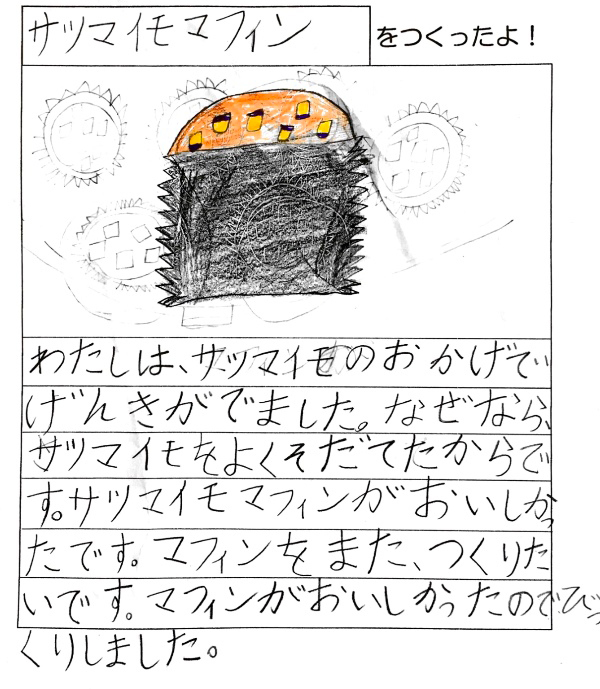 サツマイモマフィン をつくったよ!
わたしは、サツマイモのおかげで
げんきがでました。なぜなら、
サツマイモをよくそだてたからで
す。サツマイモマフィンがおいしかっ
たです。マフィンをまた、つくりた
いです。マフィンがおいしかったのでびっ
くりしました。